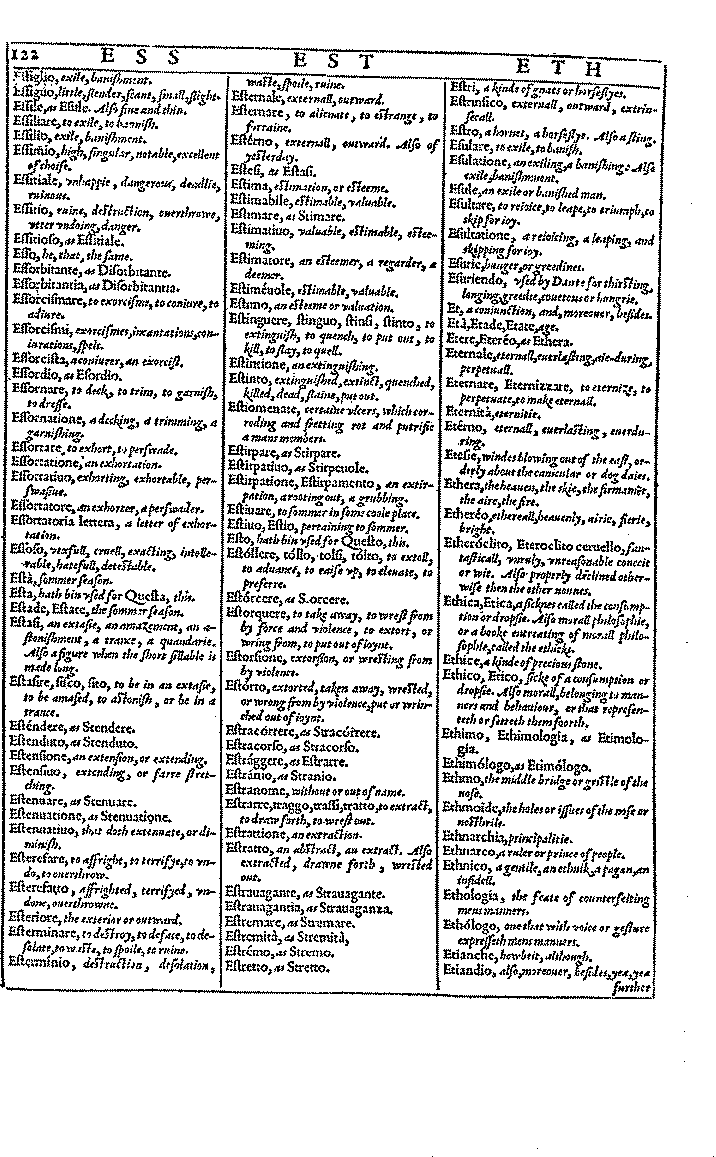 122 E S S E S T E T H
Essiglio, exile, banishment.
Essiguo, little, slender, scant, small, slight.
Essile, as Esile. Also fine and thin.
Essiliare, to exile, to banish.
Essilio, exile, banishment.
Essimio, high, singular, notable, excellent
of choise.
Essitiale, vnhappie, dangerous, deadlie,
ruinous.
Essitio, ruine, destruction, ouerthrowe,
vtter vndoing, danger.
Essitioso, as Essitiale.
Esso, he, that, the same.
Essorbitante, as Disorbitante.
Essorbitantia, as Disorbitantia.
Essorcismare, to exorcisme, to coniure, to
adiure.
Essorcismi, exorcismes, incantations, con-
iurations, spels.
Essorcista, a coniurer, an exorcist.
Essordio, as Esordio.
Essornare, to deck, to trim, to garnish,
to dresse.
Essornatione, a decking, a trimming, a
garnishing.
Essortare, to exhort, to perswade.
Essortatione, an exhortation.
Essortatiuo, exhorting, exhortable, per-
swasiue.
Essortatore, an exhorter, a perswader.
Essortatoria lettera, a letter of exhor-
tation.
Essoso, vexfull, cruell, exacting, intolle-
rable, hatefull, detestable.
Està, sommer season.
Esta, hath bin vsed for Questa, this.
Estade, Estate, the sommer season.
Estasi, an extasie, an amazement, an a-
stonishment, a trance, a quandarie.
Also a figure when the short sillable is
made long.
Estasire, sisco, sito, to be in an extasie,
to be amased, to astonish, or be in a
trance.
Esténdere, as Stendere.
Estenduto, as Stenduto.
Estensione, an extension, or extending.
Estensiuo, extending, or farre stret-
ching.
Estenuare, as Stenuare.
Estenuatione, as Stenuatione.
Estenuatiuo, that doth extenuate, or di-
minish.
Esterefare, to affright, to terrifye, to vn-
do, to ouerthrow.
Esterefatto, affrighted, terrifyed, vn-
done, ouerthrowne.
Esteriore, the exterior or outward.
Esterminare, to destroy, to deface, to de-
solate, to waste, to spoile, to ruine.
Estermínio, destruction, desolation,
waste, spoile, ruine.
Esternale, externall, outward.
Esternare, to alienate, to estrange, to
forraine.
Estérno, externall, outward. Also of
yesterday.
Estesi, as Estasi.
Estima, estimation, or esteeme.
Estimabile, estimable, valuable.
Estimare, as Stimare.
Estimatiuo, valuable, estimable, estee-
ming.
Estimatore, an esteemer, a regarder, a
deemer.
Estiméuole, estimable, valuable.
Estimo, an esteeme or valuation.
Estinguere, stinguo, stinsi, stinto, to
extinguish, to quench, to put out, to
kill, to slay, to quell.
Estintione, an extinguishing.
Estinto, extinguished, extinct, quenched,
killed, dead, slaine, put out.
Estiomenate, certaine vlcers, which cor-
roding and fretting rot and putrifie
a mans members.
Estirpare, as Stirpare.
Estirpatiuo, as Stirpeuole.
Estirpatione, Estirpamento, an extir-
pation, a rooting out, a grubbing.
Estiuare, to sommer in some coole place.
Estiuo, Estio, pertaining to sommer.
Esto, hath bin vsed for Questo, this.
Estóllere, tóllo, tolsi, tólto, to extoll,
to aduance, to raise vp, to eleuate, to
preferre.
Estórcere, as S.orcere.
Estorquere, to take away, to wrest from
by force and violence, to extort, or
wring from, to put out of ioynt.
Estorsione, extorsion, or wresting from
by violence.
Estórto, extorted, taken away, wrested,
or wrong from by violence, put or wrin-
ched out of ioynt.
Estracórrere, as Stracórrere.
Estracorso, as Stracorso.
Estràggere, as Estrarre.
Estrànio, as Stranio.
Estranome, without or out of name.
Estrarre, traggo, trassi, tratto, to extract,
to draw forth, to wrest out.
Estrattione, an extraction.
Estratto, an abstract, an extract. Also
extracted, drawne forth, wrested
out.
Estrauagante, as Strauagante.
Estrauagantia, as Strauaganza.
Estremare, as Stremare.
Estremità, as Stremità,
Estrémo, as Stremo.
Estretto, as Stretto.
Estri, a kinde of gnats or horseflyes.
Estrinsico, externall, outward, extrin-
secall.
Estro, a hornet, a horseflye. Also a sting.
Esulare, to exile, to banish.
Esulatione, an exiling, a banishing: Also
exile, banishment.
Esule, an exile or banished man.
Esultare, to reioice, to leape, to triumph, to
skip for ioy.
Esultatione, a reioicing, a leaping, and
skipping for ioy.
Esurie, hunger, or greedines.
Esuriendo, vsed by Dante for thirsting,
longing, greedie, couetous or hungrie.
Et, a coniunction, and, moreouer, besides.
Età, Etade, Etate, age.
Etere, Etereó, as Ethera.
Eternale, eternall, euerlasting, aie-during,
perpetuall.
Eternare, Eternizzare, to eternize, to
perpetuate, to make eternall.
Eternità, eternitie.
Etérno, eternall, euerlasting, euerdu-
ring.
Etesie, windes blowing out of the east, or-
derly about the canicular or dog daies.
Ethera, the heauen, the skie, the firmament,
the aire, the fire.
Ethereó, ethereall, heauenly, airie, fierie,
bright.
Etheróclito, Eteroclito ceruello, fan-
tasticall, vnruly, vnreasonable conceit
or wit. Also properly declined other-
wise then the other nounes.
Ethica, Etica, a sicknes called the consump-
tion or dropsie. Also morall philosophie,
or a booke entreating of morall philo-
sophie, called the ethicks.
Ethice, a kinde of precious stone.
Ethico, Etico, sicke of a consumption or
dropsie. Also morall, belonging to man-
ners and behauiour, or that represen-
teth or setteth them forth.
Ethimo, Ethimologia, as Etimolo-
gia.
Ethimólogo, as Etimólogo.
Ethmo, the middle bridge or gristle of the
nose.
Ethmoide, the holes or issues of the nose or
nosthrils.
Ethnarchia, principalitie.
Ethnarco, a ruler or prince of people.
Ethnico, a gentile, an ethnik, a pagan, an
infidell.
Ethologia, the feate of counterfeiting
mens manners.
Ethólogo, one that with voice or gesture
expresseth mens manners.
Etianche, howbeit, although.
Etiandio, also, moreouer, besides, yea, yea
further